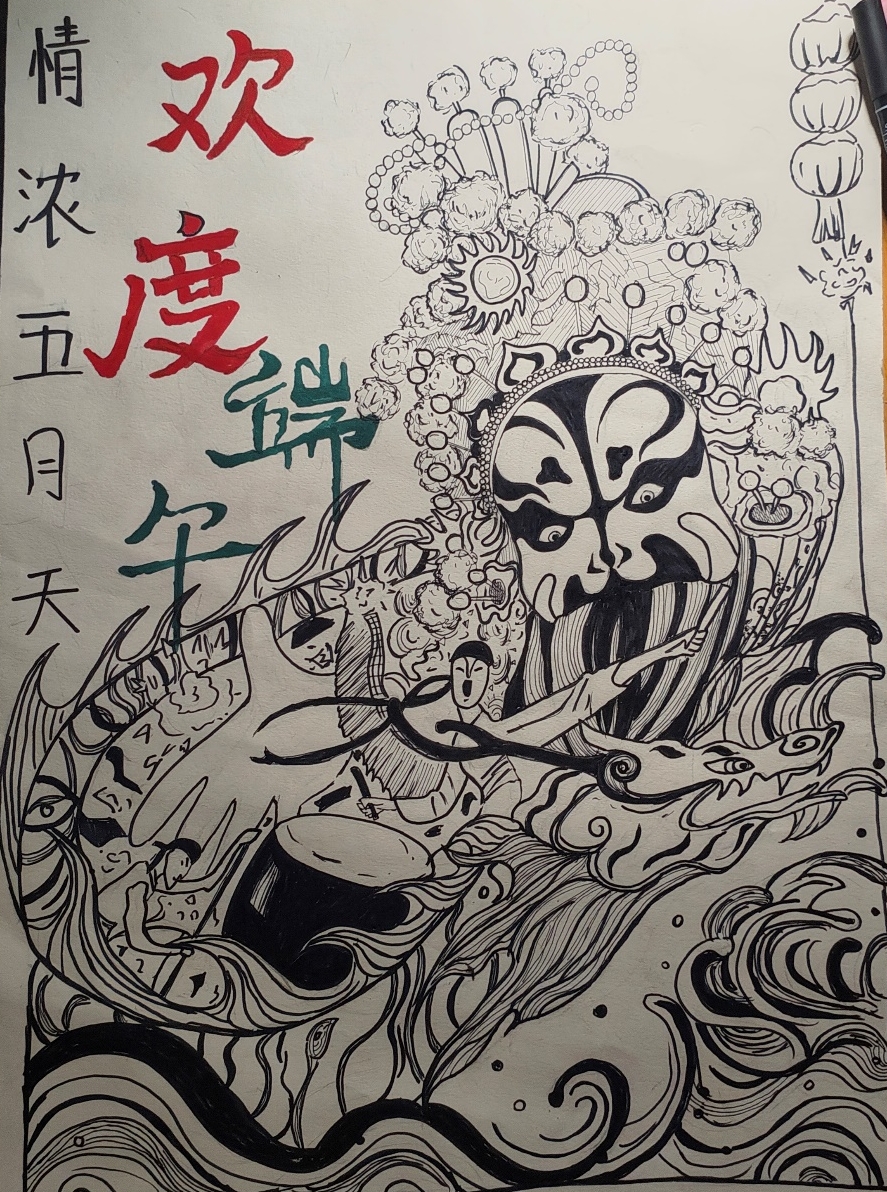 情浓五月天
欢度
端午